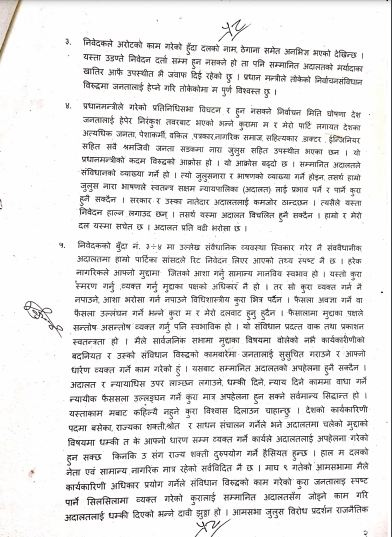 ३. निवेदकले अरोटको काम गरेको हुँदा दलको नाम, ठेगाना समेत अनभिज्ञ भएको देखिन्छ ।
यस्ता उडन्ते निवेदन दर्ता सम्म हुन नसक्ने हो ता पनि सम्मानित अदालतको मर्यादाका
खातिर आफै उपस्थीत भै जवाफ दिई रहेको छु । प्रधान मन्त्रीले तोकेको निर्वाचनसंविधान
विरुद्धमा जनतालाई हेप्ने गरि तोकेकोमा म पुर्ण विश्वस्त छु ।
४. प्रधानमन्त्रीले गरेको प्रतिनिधिसभा विघटन र हुन नसक्ने निर्वाचन मिति घोषणा देश
जनतालाई हेपेर निरंकुश तवरबाट भएको भन्ने कुरामा म र मेरो पार्टि लगायत देशका
अत्यधिक जनता, पेशाकर्मी, वकिल ,पत्रकार,नागरिक समाज, सहित्यकार ,डाक्टर , ईन्जिनियर
सहित सवै श्रमजिवी जनता सडकमा नारा जुलुस सहित उपस्थीत भएका छन । यो
प्रधानमन्त्रीको कदम विरुद्धको आक्रोस हो । यो आक्रोस बढ्दो छ । सम्मानित अदालतले
संविधानको व्याख्या गर्ने हो । त्यो जुलुसनारा र भाषणको व्याख्या गर्ने होइन, तसर्थ हाम्रो
जुलुस नारा भाषणले स्वतन्त्र सक्षम न्यायपालिका (अदालत) लाई प्रभाव पर्ने र पार्ने कुरा
हुनै सक्दैन । सरकार र उस्का नातेदार अदालतलाई कमजोर ठान्दछन । त्यसैले यस्ता
निवेदन हाल्न लगाउद छन् । तसर्थ यसमा अदालत विचलित हुनै सक्दैन । हाम्रो र मेरो
दल यस्मा सचेत छ । अदालत प्रति वढी भरोसा छ ।
५. निवेदकको बुँदा नं. ३÷४ मा उल्लेख संवैधानिक व्यवस्था स्विकार गरेर नै संवैवैधानीक
अदालतमा हाम्रो पार्टिका सांसदले रिट निवेदन लिएर आएको तथ्य स्पष्ट नै छ । हरेक
नागरिकले आफ्नो मुद्दामा जितको आशा गर्नु सामान्य मानविय स्वभाव हो । यस्तो कुरा
स्मरण गर्नु ,व्यक्त गर्नु मुद्दाका पक्षको अधिकार नै हो । तर सो कुरा व्यक्त गर्न नै
नपाउने, आशा भरोसा गर्न नपाउने विधिशास्त्रीय कुरा भित्र पर्दैन । फैसला अवज्ञा गर्ने वा
फैसला उल्लंघन गर्ने भन्ने कुरा म र मेरो दलवाट हुनु हुदैन । फैसालामा मुद्दाका पक्षले
सन्तोष असन्तोष व्यक्त गर्नु पनि स्वभाविक हो । यो संविधान प्रदत्त वाक तथा प्रकाशन
स्वतन्त्रता हो । मैले सार्वजनिक सभामा मुद्दाका विषयमा वोलेको नभै कार्यकारीणीको
बदनियत र उस्को संविधान विरुद्धको कामबारेमा जनतालाई सुसुचित गराउने र आफ्नो
धारणा व्यक्त गर्ने काम गरेको हुँ । यसबाट सम्मानित अदालतको अपहेलना हुनै सक्दैन ।
अदालत र न्यायाधिस उपर लाञ्छन लगाउने, धम्की दिने, न्याय दिने काममा वाधा गर्ने
न्यायीक फैससला उल्लङ्घन गर्ने कुरा मात्र अपहेलना हुन सक्ने सर्वमान्य सिद्धान्त हो ।
यस्ताकाम मबाट कहिल्यै नहुने कुरा विश्वास दिलाउन चाहान्छु । देशको कार्यकारिणी
पदमा बसेका, राज्यका शक्ती,श्रोत र साधन संचालन गर्नेले भने अदालतमा चलेको मुद्दाको
विषयमा धम्की त के आफ्नो धारण सम्म व्यक्त गर्ने कार्यले अदालतलाई अपहेलना गरेको
हुन सक्छ किनकि उ संग राज्य शक्ती दुरुपयोग गर्ने हैसियत हुन्छ । हाल म दलको
नेता एवं सामान्य नागरिक मात्र रहेको सर्वविदितै नै छ । माघ ९ गतेको आमसभामा मैले
कार्यकारिणी अधिकार प्रयोग गर्नेले संविधान विरुद्धको काम गरेको कुरा जनतालाई स्पष्ट
पार्ने सिलसिलामा व्यक्त गरेको कुरालाई सम्मानित अदालतसँग जोड्ने काम गरि
अदालतलाई धम्की दिएको भन्ने दावी झुठ्ठा हो । आमसभा जुलुस विरोध प्रदर्शन राजनैतिक
२